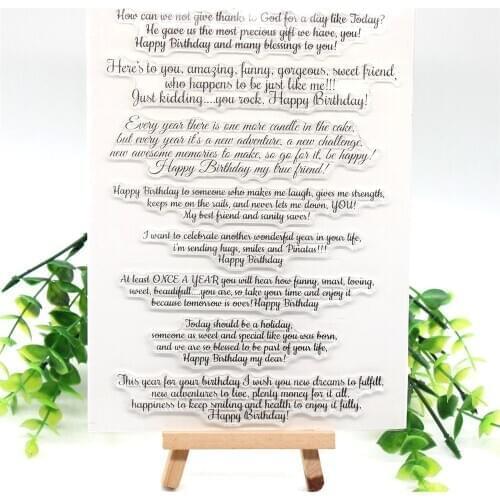 How can we not give thanks to God for a day like Today?
He gave us the most precious gift we have, you!
Happy Birthday and many blessings to you!
Here's to you, amazing, funny, gorgeous, sweet friend,
who happens to be just like me!!!
Just kidding....you rock, Happy Birthday!
Every year there is one more candle in the cake,
but every year it's a new adventure, a new challenge,
new awesome memories to make, so go for it, be happy!
Happy Birthday my true friend!
Happy Birthday to someone who makes me laugh, gives me strength,
keeps me on the rails, and never lets me down, YOU!
My best friend and sanity saver!
I want to celebrate another wonderful year in your life,
i'm sending hugs, smiles and Piñatas!!!
Happy Birthday
At least ONCE A YEAR you will hear how funny, smart, loving,
sweet, beautifull....you are, so take your time and enjoy it
because tomorrow is over! Happy Birthday
Today should be a holiday,
someone as sweet and special like you was born,
and we are so blessed to be part of your life,
Happy Birthday my dear!
This year for your birthday I wish you new dreams to fulfill,
new adventures to live, plenty money for it all,
happiness to keep smiling and health to enjoy it fully,
Happy Birthday!